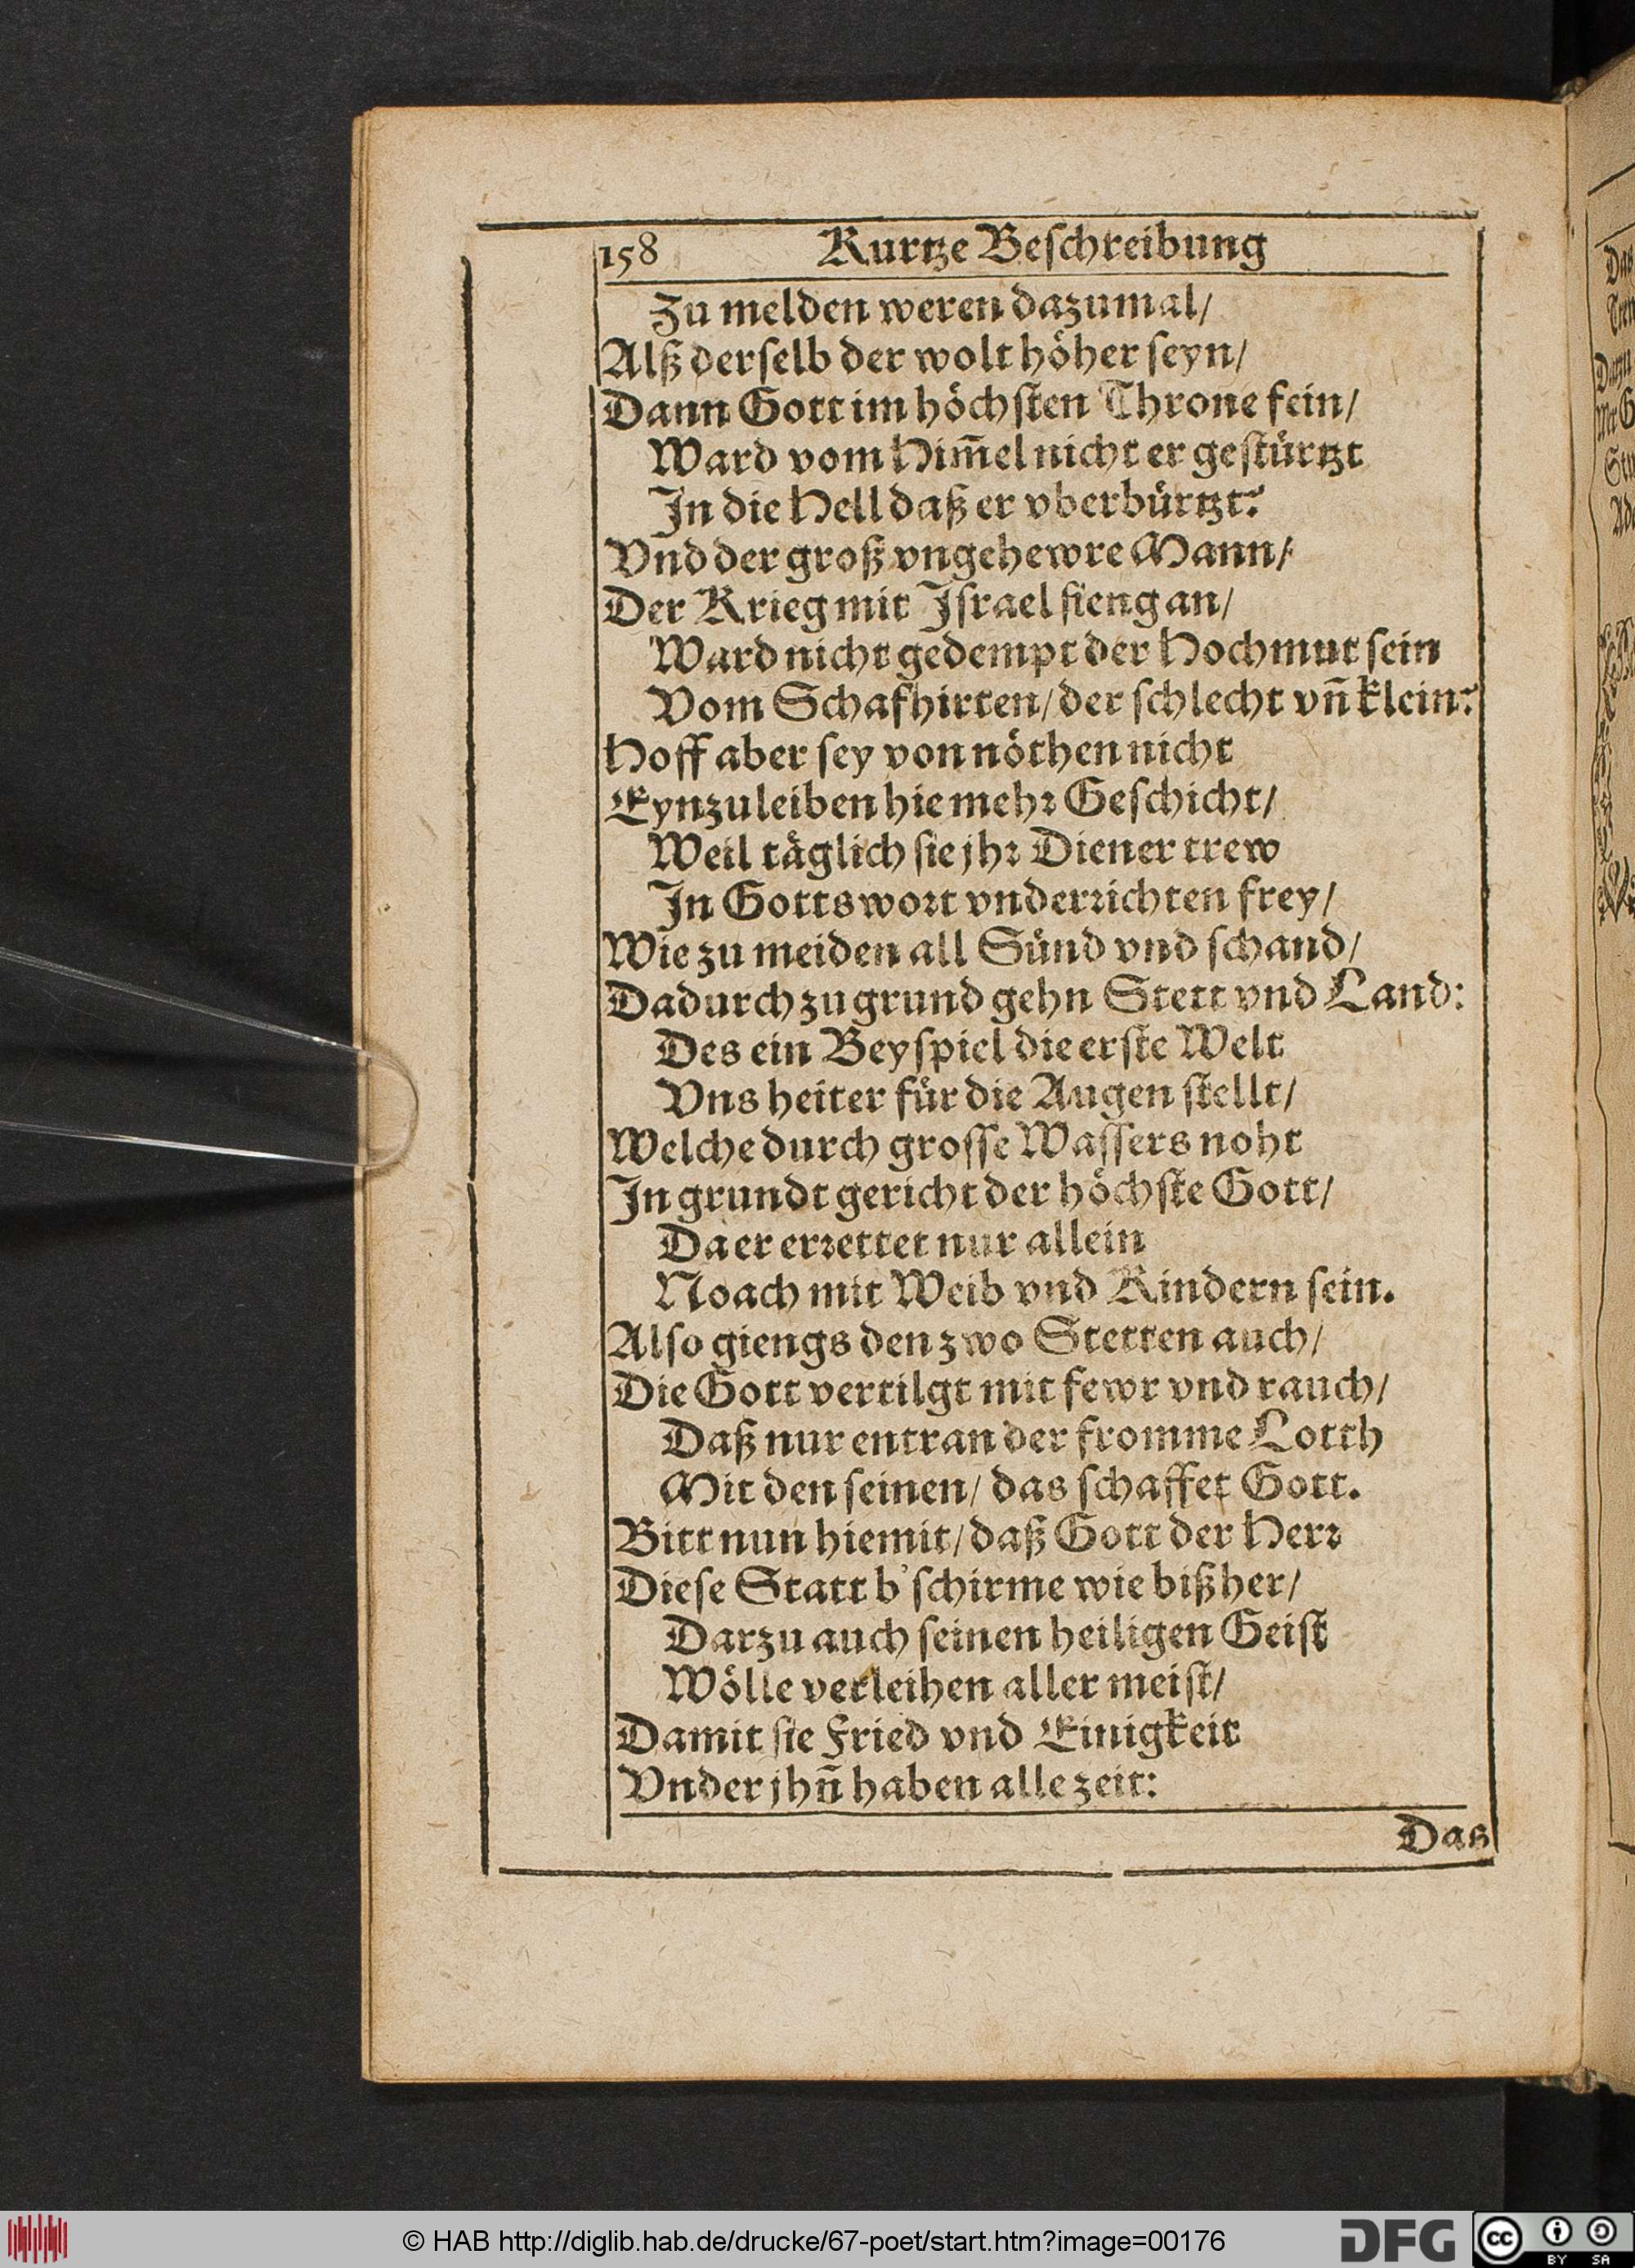 158 Kurtze Beſchreibung
Zu melden weren dazumal/
Alß derſelb der wolt höher ſeyn/
Dann Gott im höchſten Throne fein/
Ward vom Him̃el nicht er geſtürtzt
In die Hell daß er vberbürtzt?
Vnd der groß vngehewre Mann/
Der Krieg mit Iſrael fieng an/
Ward nicht gedempt der Hochmut ſein
Vom Schafhirten/ der ſchlecht vn̄ klein?
Hoff aber ſey von nöthen nicht
Eynzuleiben hie mehꝛ Geſchicht/
Weil täglich ſie jhꝛ Diener trew
In Gottswoꝛt vnderꝛichten frey/
Wie zu meiden all Sünd vnd ſchand/
Dadurch zu grund gehn Stett vnd Land:
Des ein Beyſpiel die erſte Welt
Vns heiter für die Augen ſtellt/
Welche durch groſſe Waſſers noht
In grundt gericht der höchſte Gott/
Da er erꝛettet nur allein
Noach mit Weib vnd Kindern ſein.
Alſo giengs den zwo Stetten auch/
Die Gott vertilgt mit fewr vnd rauch/
Daß nur entran der fromme Lotth
Mit den ſeinen/ das ſchaffet Gott.
Bitt nun hiemit/ daß Gott der Herꝛ
Dieſe Statt b'ſchirme wie bißher/
Darzu auch ſeinen heiligen Geiſt
Wölle verleihen aller meiſt/
Damit ſie Fried vnd Einigkeit
Vnder jhn̄ haben alle zeit:
Das
© HAB http://diglib.hab.de/drucke/67-poet/start.htm?image=00176
DFG
cc BY SA